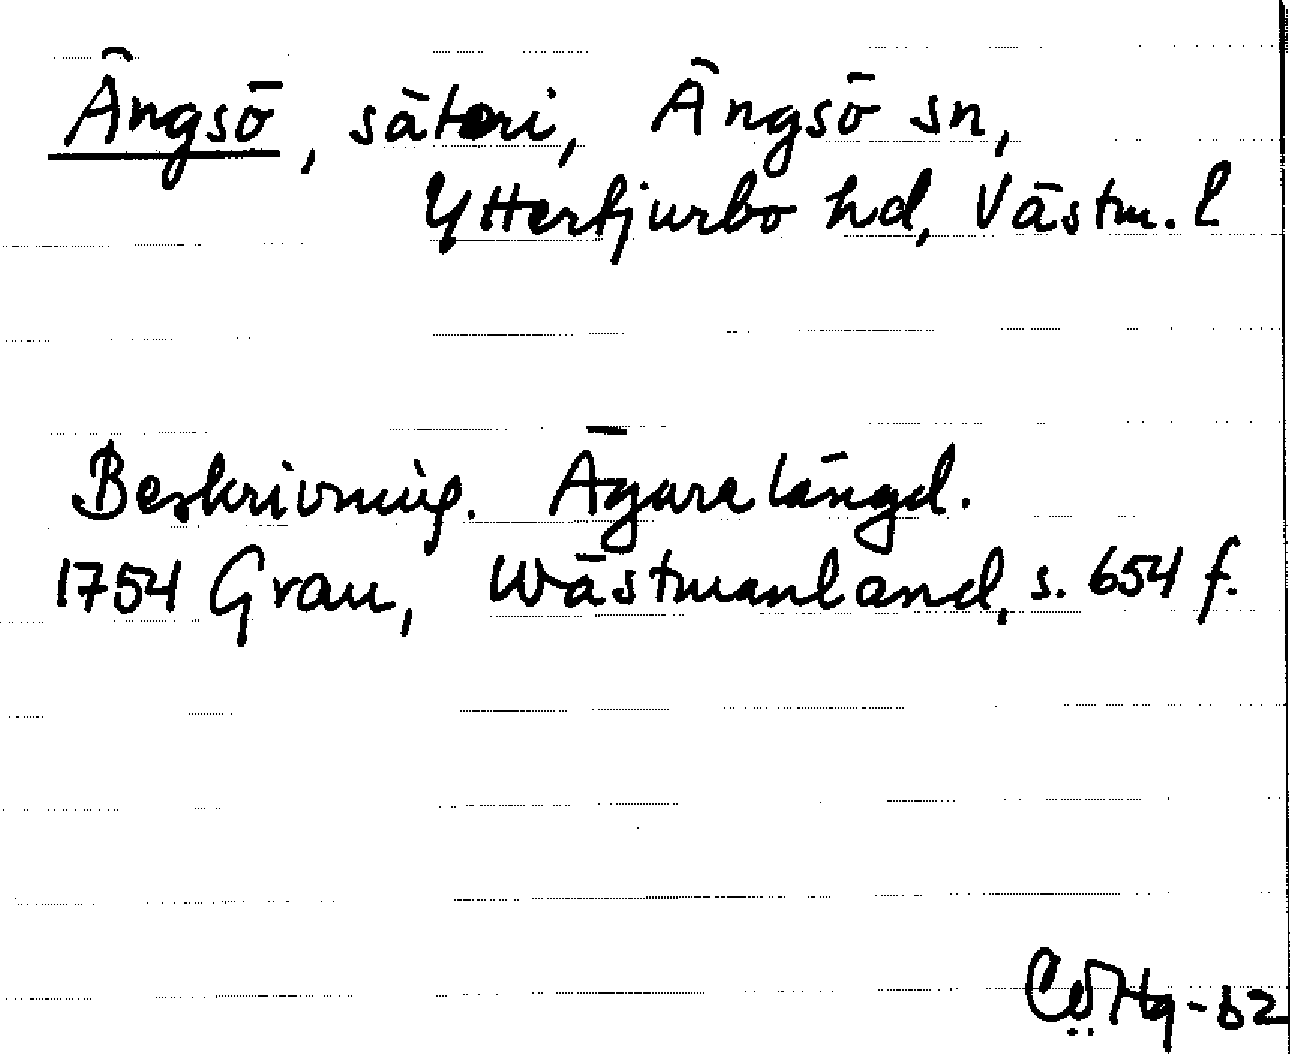 Ängsö, säteri, Ängsö sn,
Ytterfjurbo hd, Västm. l
Beskrivning. Ägarelängd.
1754 Grau, Wästmanland, s. 654 f.